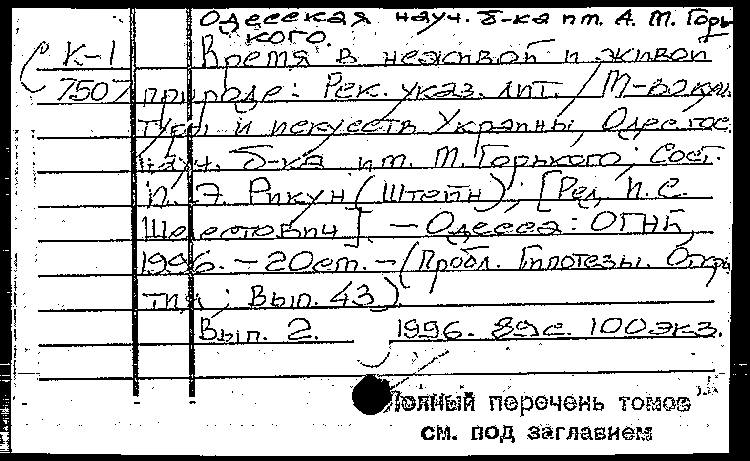 Одесская науч. б-ка им. А. М. Горь
кого.
К-1 Время в неживой и живой
7507 природе: Рек. указ. лит. / М-во куль
туры и искусств Украины, Одес. гос.
науч. б-ка им. М. Горького; Сост.
И. Э. Рикун (Штейн); [Ред. И. С.
Шелестович]. — Одесса: ОГНБ,
1996. — 20 см. — (Пробл. Гипотезы. Откры
тия; Вып. 43)
Вып. 2. 1996. 89 с. 100 экз.
Полный перечень томов
см. под заглавием